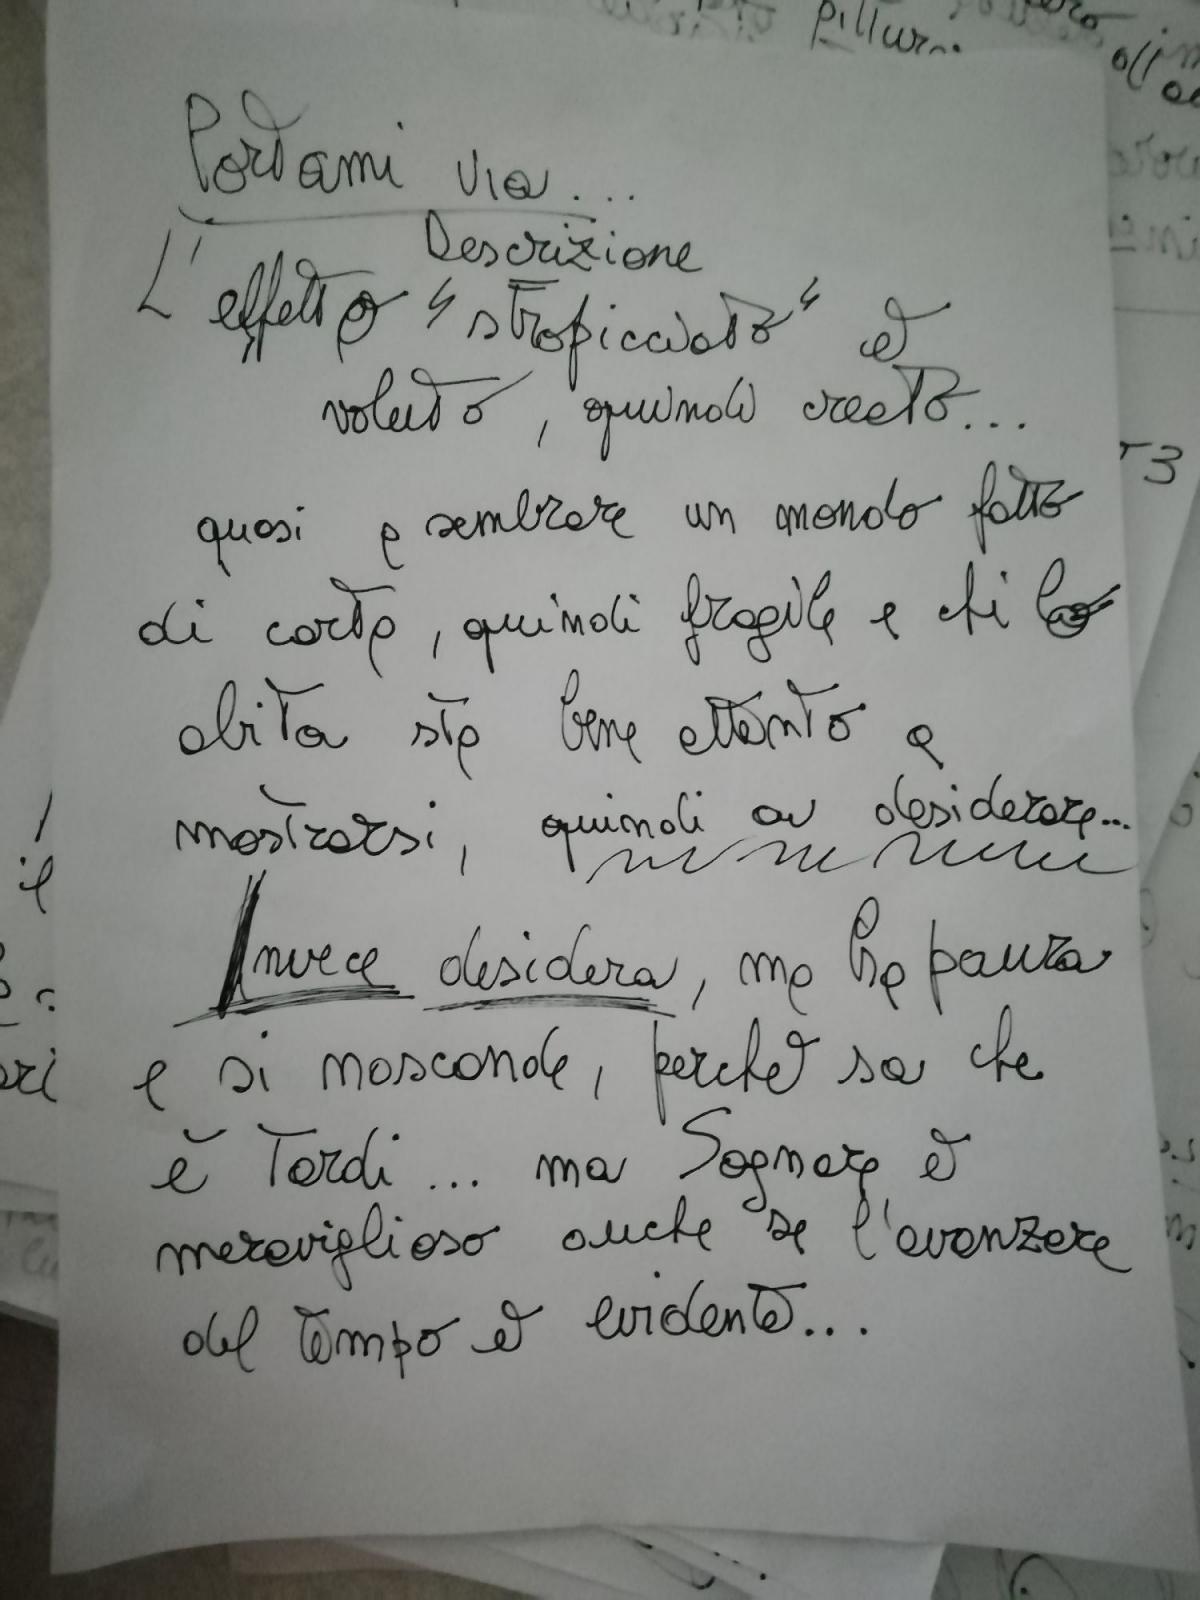 Pillur..
Portami via...
Descrizione
L'effetto "stropicciato" è
voluto, quindi creato...
quasi a sembrare un mondo fatto
di carta, quindi fragile e chi lo
abita sta bene attento a
mostrarsi, quindi a desiderare...
Invece desidera, ma ha paura
e si nasconde, perchè sa che
è tardi... ma Sognare è
meraviglioso anche se l'avanzare
del tempo è evidente...
3
il